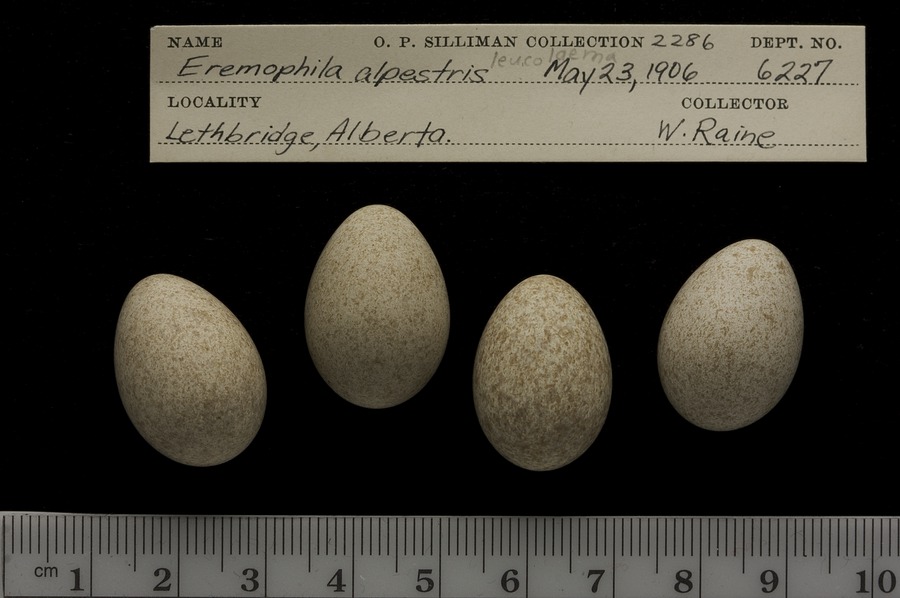 NAME O. P. SILLIMAN COLLECTION 2286 DEPT. NO.
leucolaema
Eremophila alpestris May 23, 1906 6227
LOCALITY COLLECTOR
Lethbridge, Alberta. W. Raine
cm 1 2 3 4 5 6 7 8 9 10